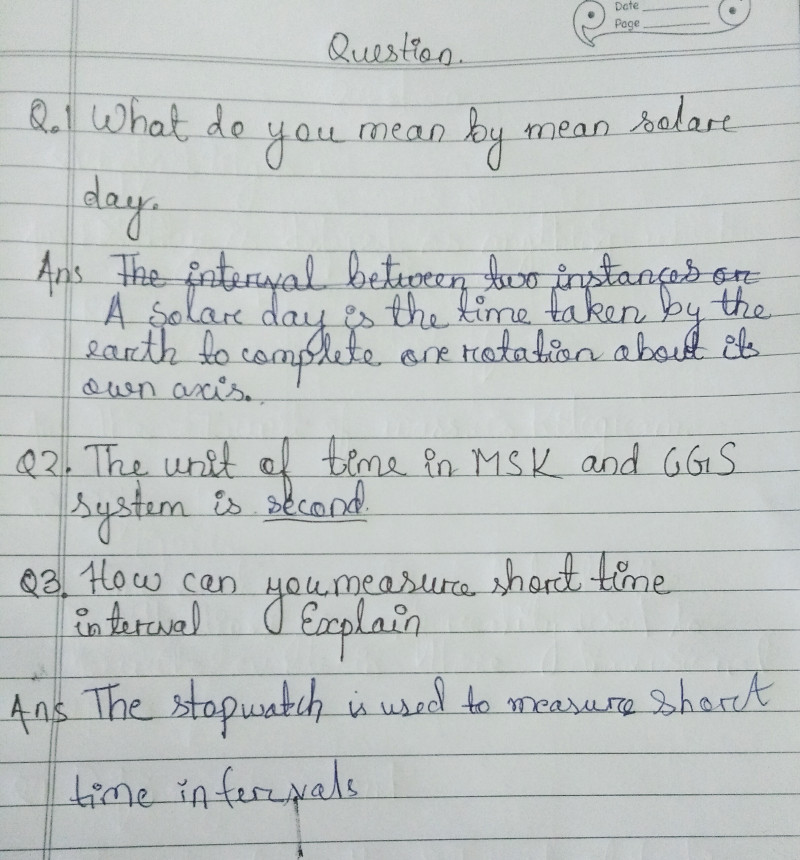 Date
Page
Question.
Q.1 What do you mean by mean solare
day.
Ans The interval between two instances on
A solare day is the time taken by the
earth to complete one rotation about its
own axis.
Q2. The unit of time in MSK and CGS
system is second.
Q3. How can you measure short time
interval Explain
Ans The stopwatch is used to measure short
time intervals